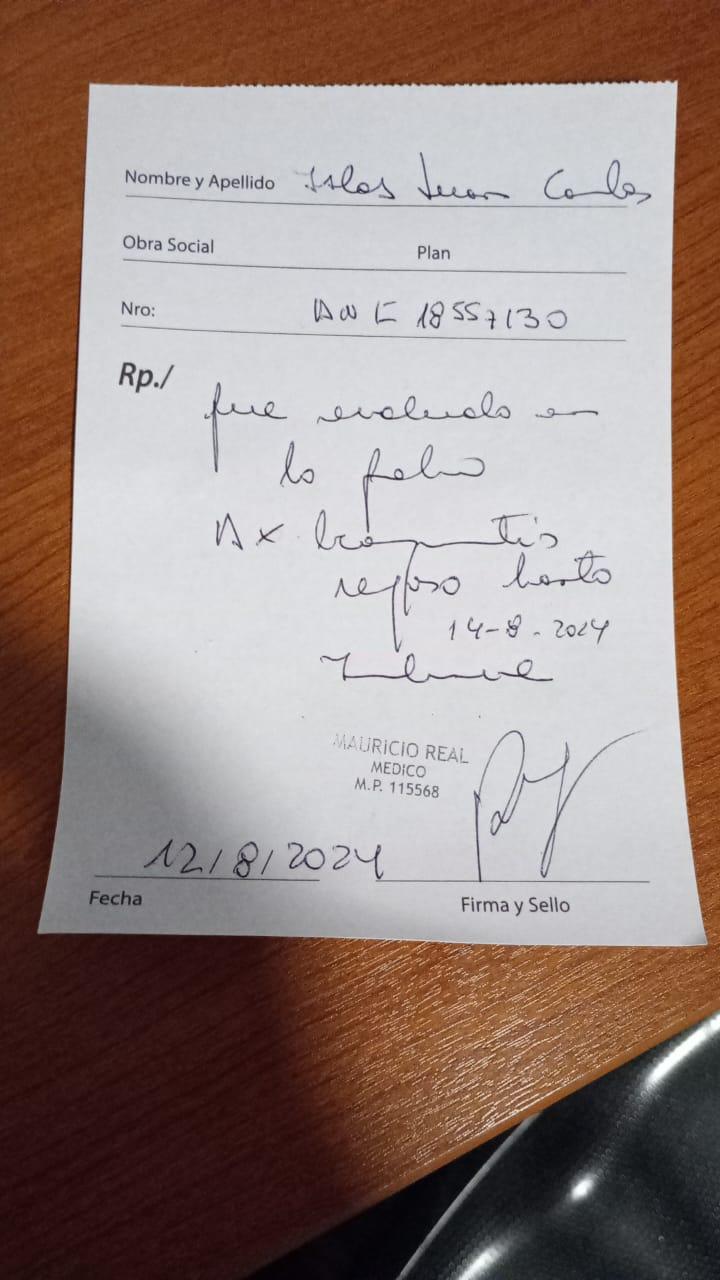 Nombre y Apellido Islas Juan Carlos
Obra Social Plan
Nro: DNI 18557130
Rp./
fue evaluado en
la fecha
Dx bronquitis
reposo hasta
14-8-2024
inclusive
MAURICIO REAL
MEDICO
M.P. 115568
12/8/2024
Fecha Firma y Sello